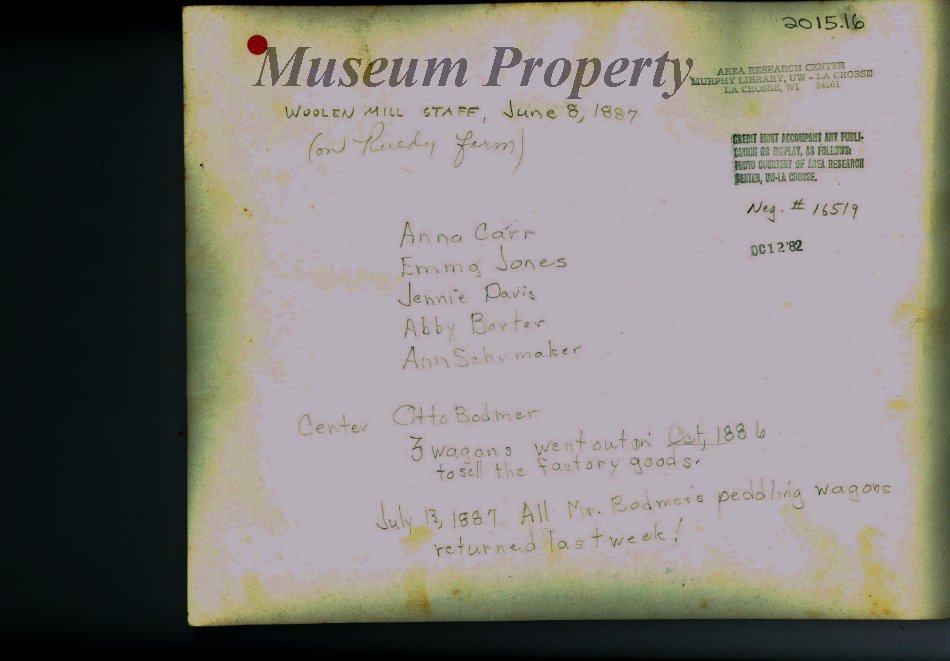 2015.16
Museum Property
AREA RESEARCH CENTER
MURPHY LIBRARY, UW - LA CROSSE
LA CROSSE, WI 54601
WOOLEN MILL STAFF, June 8, 1887
(on Ruedy farm)
CREDIT MUST ACCOMPANY ANY PUBLI-
CATION OR DISPLAY, AS FOLLOWS:
PHOTO COURTESY OF AREA RESEARCH
CENTER, UW-LA CROSSE.
Neg. # 16519
OC 12 '82
Anna Carr
Emma Jones
Jennie Davis
Abby Barter
Ann Schumaker
Center Otto Bodmer
3 wagons went out on Oct, 1886
to sell the factory goods.
July 13, 1887 All Mr. Bodmer's peddling wagons
returned last week!